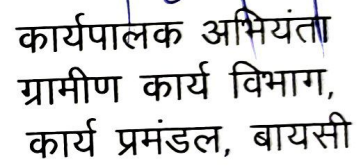 कार्यपालक अभियंता
ग्रामीण कार्य विभाग,
कार्य प्रमंडल, बायसी